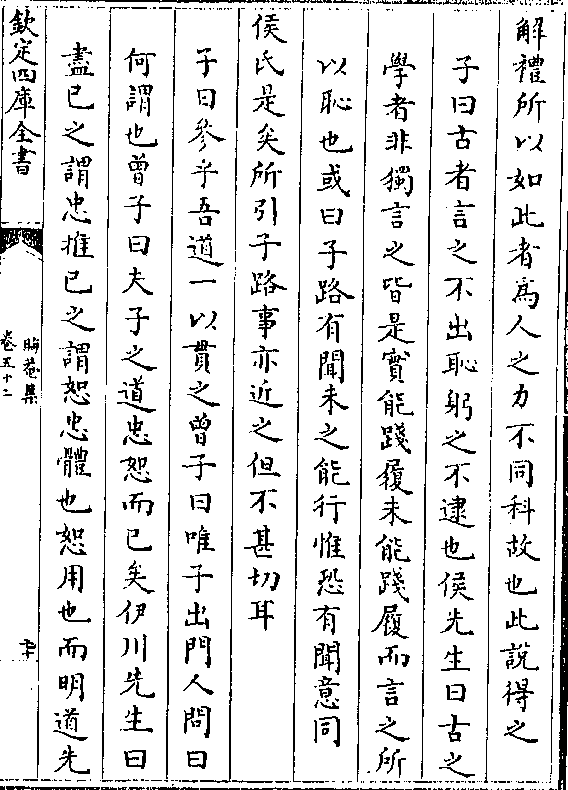 解禮所以如此者為人之力不同科故也此說得之
子曰古者言之不出恥躬之不逮也侯先生曰古之
學者非獨言之皆是實能踐履未能踐履而言之所
以恥也或曰子路有聞未之能行惟恐有聞意同
侯氏是矣所引子路事亦近之但不甚切耳
子曰參乎吾道一以貫之曾子曰唯子出門人問曰
何謂也曾子曰夫子之道忠恕而已矣伊川先生曰
盡已之謂忠推已之謂恕忠體也恕用也而明道先
欽定四庫全書
晦菴集
卷五十二